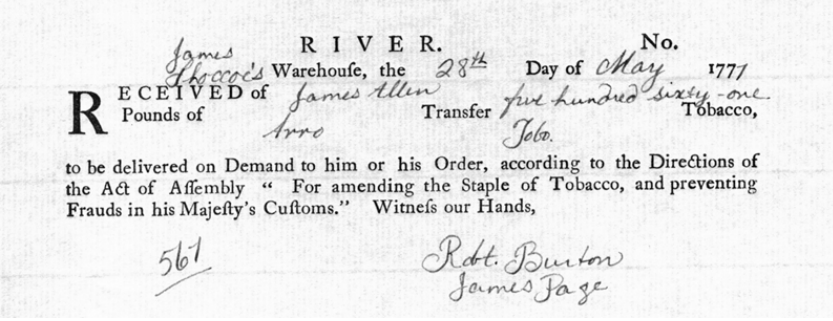 James RIVER. No.
Shoccoe's Warehouſe, the 28th Day of May 1777
RECEIVED of James Allen five hundred sixty-one
Pounds of Transfer Tobacco,
Arro Tobo.
to be delivered on Demand to him or his Order, according to the Directions of
the Act of Aſſembly “ For amending the Staple of Tobacco, and preventing
Frauds in his Majeſty's Cuſtoms.” Witneſs our Hands,
561
Robt. Burton
James Page